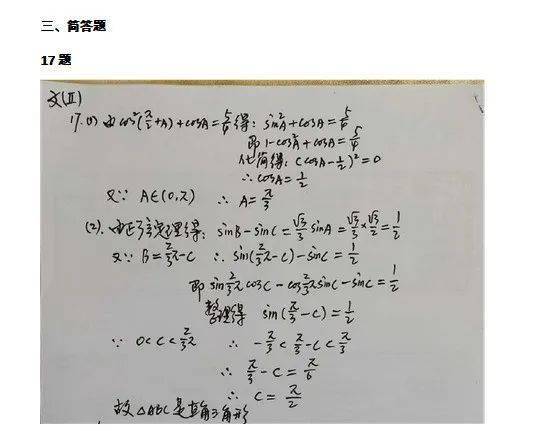 三、简答题
17题
文(Ⅱ)
17.(1) 由cos²(π/2+A)+cosA=5/4得: sin²A+cosA=5/4
即 1-cos²A+cosA=5/4
化简得: (cosA-1/2)²=0
∴cosA=1/2
又∵ A∈(0,π) ∴ A=π/3
(2). 由正弦定理得: sinB-sinC=√3/3 sinA=√3/3×√3/2=1/2
又∵ B=2/3π-C ∴ sin(2/3π-C)-sinC=1/2
即 sin2/3π cosC-cos2/3π sinC-sinC=1/2
整理得 sin(π/3-C)=1/2
∵ 0<C<2/3π ∴ -π/3<π/3-C<π/3
∴ π/3-C=π/6
∴ C=π/2
故△ABC是直角三角形